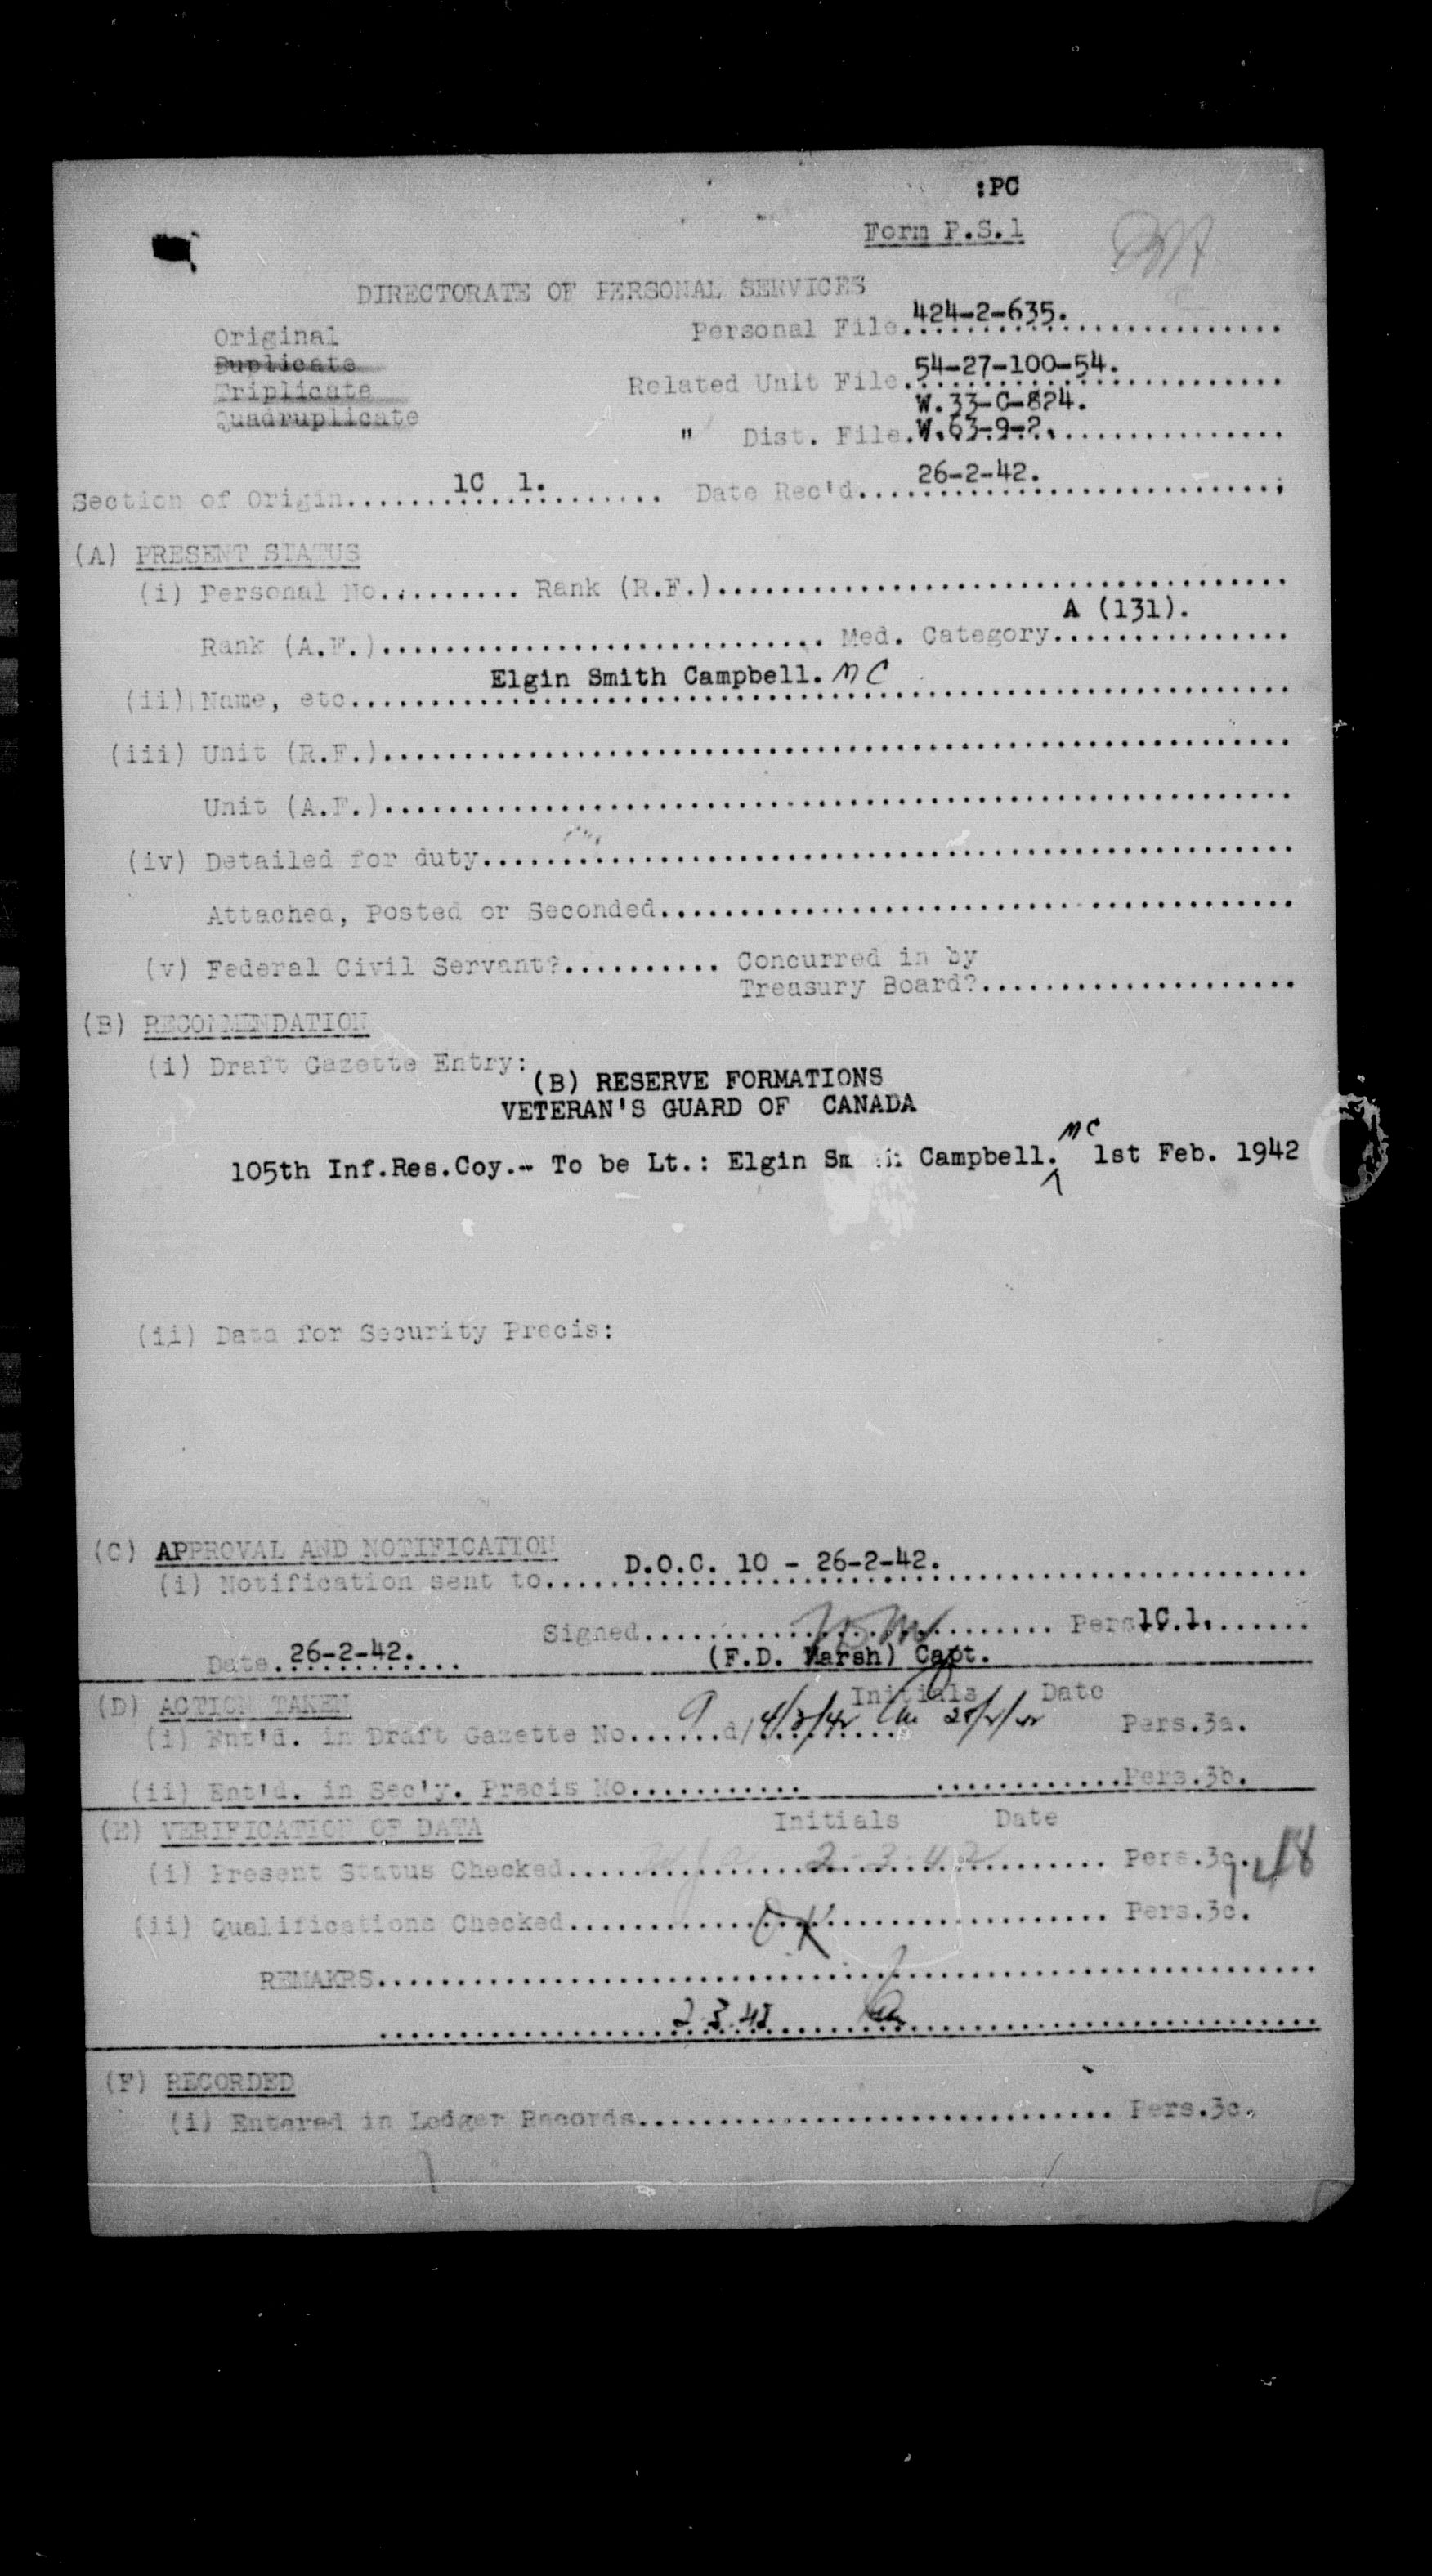 :PC
Form P.S.1
DIRECTORATE OF PERSONAL SERVICES
Original
Personal File.424-2-635.
Duplicate
Triplicate
Related Unit File.54-27-100-54.
Quadruplicate
W.33-C-824.
" Dist. File.W.63-9-2.
Section of Origin....1C 1..... Date Rec'd....26-2-42.....;
(A) PRESENT STATUS
(i) Personal No.......... Rank (R.F.)..........
A (131).
Rank (A.F.).......... Med. Category..........
(ii) Name, etc....Elgin Smith Campbell. MC
(iii) Unit (R.F.)..........
Unit (A.F.)..........
(iv) Detailed for duty..........
Attached, Posted or Seconded..........
(v) Federal Civil Servant?.......... Concurred in by
Treasury Board?..........
(B) RECOMMENDATION
(i) Draft Gazette Entry:
(B) RESERVE FORMATIONS
VETERAN'S GUARD OF CANADA
MC
105th Inf.Res.Coy.- To be Lt.: Elgin Campbell. 1st Feb. 1942
(ii) Data for Security Precis:
(C) APPROVAL AND NOTIFICATION
(i) Notification sent to....D.O.C. 10 - 26-2-42.
Signed.......... Pers1C.1.
Date.26-2-42. (F.D. Marsh) Capt.
(D) ACTION TAKEN Initials Date
(i) Ent'd. in Draft Gazette No...9...d/4/3/42 Pers.3a.
(ii) Ent'd. in Sec'y. Precis No.......... Pers.3b.
(E) VERIFICATION OF DATA Initials Date
(i) Present Status Checked.......... 2-3-42 Pers.3c.
(ii) Qualifications Checked....OK.... Pers.3c.
REMAKRS..........
2.3.42
(F) RECORDED
(i) Entered in Ledger Records.......... Pers.3c.